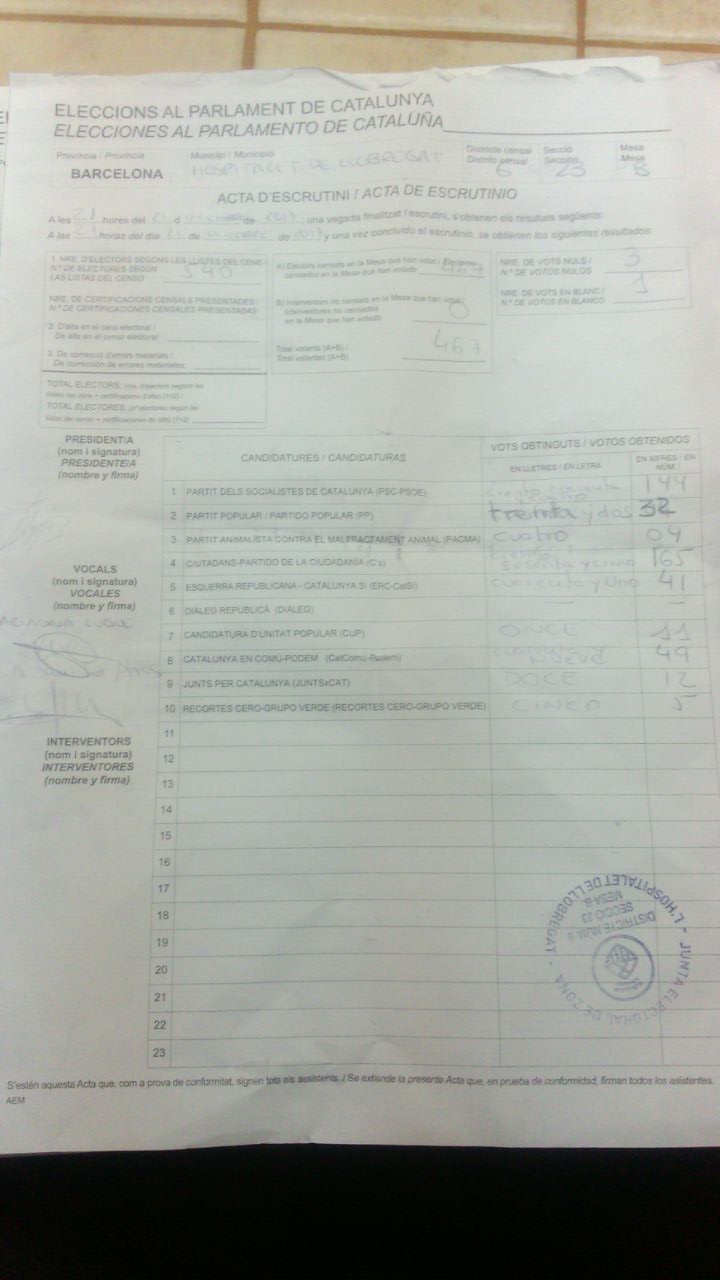 ELECCIONS AL PARLAMENT DE CATALUNYA
ELECCIONES AL PARLAMENTO DE CATALUÑA
Provincia / Provincia
BARCELONA
Municipi / Municipio
HOSPITALET DE LLOBREGAT
Districte censal
Distrito censal
6
Secció
Sección
23
Mesa
Mesa
B
ACTA D'ESCRUTINI / ACTA DE ESCRUTINIO
A les 21 hores del 21 d de 2017, una vegada finalitzat l'escrutini, s'obtienen els resultats següents:
A las 21 horas del día 21 de de 2017 y una vez concluido el escrutinio, se obtienen los siguientes resultados:
1. NRE. D'ELECTORS SEGONS LES LLISTES DEL CENS /
N.º DE ELECTORES SEGÚN
LAS LISTAS DEL CENSO
540
NRE. DE CERTIFICACIONS CENSALS PRESENTADES /
N.º DE CERTIFICACIONES CENSALES PRESENTADAS
2. D'alta en el cens electoral /
De alta en el censo electoral:
3. De correcció d'errors materials /
De corrección de errores materiales:
TOTAL ELECTORS: (nre. d'electors segons les
llistes del cens + certificacions d'alta) (1+2) /
TOTAL ELECTORES: (nº electores según las
listas del censo + certificaciones de alta) (1+2)
A) Electors censats en la Mesa que han votat / Electores
censados en la Mesa que han votado
467
B) Interventors no censats en la Mesa que han votat /
Interventores no censados
en la Mesa que han votado
0
Total votants (A+B) /
Total votantes (A+B)
467
NRE. DE VOTS NULS /
N.º DE VOTOS NULOS
3
NRE. DE VOTS EN BLANC /
N.º DE VOTOS EN BLANCO
1
PRESIDENT/A
(nom i signatura)
PRESIDENTE/A
(nombre y firma)
VOCALS
(nom i signatura)
VOCALES
(nombre y firma)
INTERVENTORS
(nom i signatura)
INTERVENTORES
(nombre y firma)
CANDIDATURES / CANDIDATURAS
VOTS OBTINGUTS / VOTOS OBTENIDOS
EN LLETRES / EN LETRA
EN XIFRES / EN NÚM.
1 PARTIT DELS SOCIALISTES DE CATALUNYA (PSC-PSOE) 144
2 PARTIT POPULAR / PARTIDO POPULAR (PP) treinta y dos 32
3 PARTIT ANIMALISTA CONTRA EL MALTRACTAMENT ANIMAL (PACMA) cuatro 04
4 CIUTADANS-PARTIDO DE LA CIUDADANÍA (C's) ciento sesenta y cinco 165
5 ESQUERRA REPUBLICANA - CATALUNYA SÍ (ERC-CatSÍ) cuarenta y uno 41
6 DIÀLEG REPUBLICÀ (DIÀLEG) — —
7 CANDIDATURA D'UNITAT POPULAR (CUP) ONCE 11
8 CATALUNYA EN COMÚ-PODEM (CatComú-Podem) cuarenta y NUEVE 49
9 JUNTS PER CATALUNYA (JUNTSxCAT) DOCE 12
10 RECORTES CERO-GRUPO VERDE (RECORTES CERO-GRUPO VERDE) CINCO 5
11
12
13
14
15
16
17
18
19
20
21
22
23
L'HOSPITALET DE LLOBREGAT - JUNTA ELECTORAL DE ZONA -
DISTRICTE NÚM. 6
SECCIÓ 23
MESA B
S'estén aquesta Acta que, com a prova de conformitat, signen tots els assistents. / Se extiende la presente Acta que, en prueba de conformidad, firman todos los asistentes.
AEM